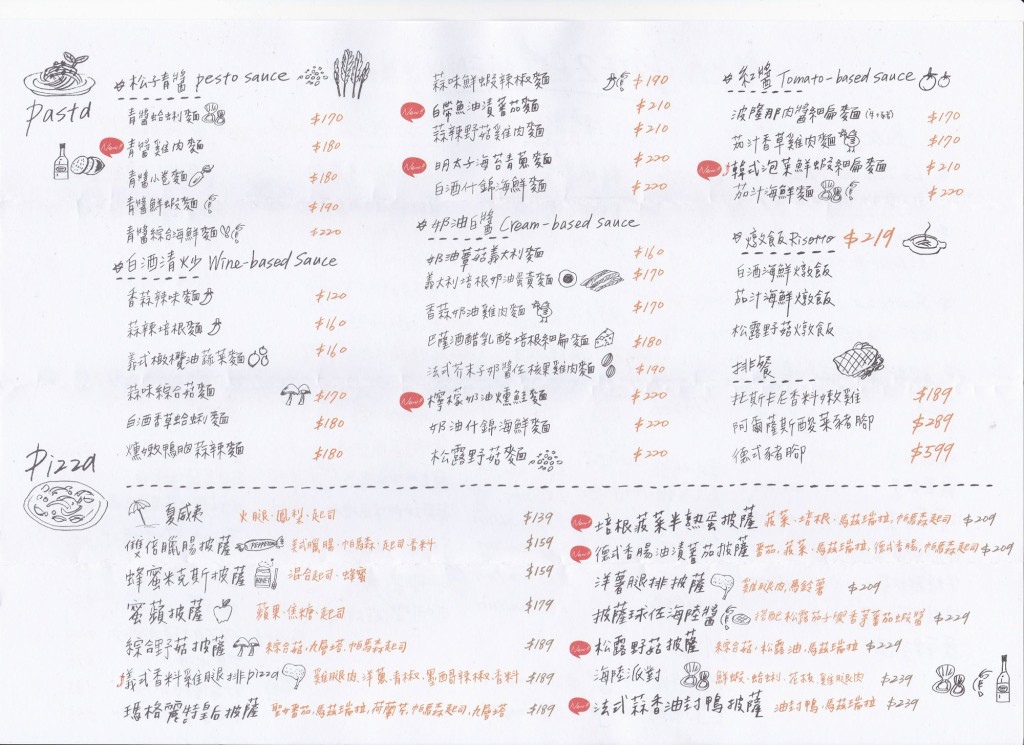 Pasta
松子青醬 pesto sauce
青醬蛤蜊麵 $170
New! 青醬雞肉麵 $180
青醬小卷麵 $180
青醬鮮蝦麵 $190
青醬綜合海鮮麵 $220
白酒清炒 Wine-based Sauce
香蒜辣味麵 $120
蒜辣培根麵 $160
義式橄欖油蔬菜麵 $160
蒜味綜合菇麵 $170
白酒香草蛤蜊麵 $180
燻嫩鴨胸蒜辣麵 $180
蒜味鮮蝦辣椒麵 $190
New! 白帶魚油漬蕃茄麵 $210
蒜辣野菇雞肉麵 $210
New! 明太子海苔青蔥麵 $220
白酒什錦海鮮麵 $220
奶油白醬 Cream-based sauce
奶油蕈菇義大利麵 $160
義大利培根奶油蛋黃麵 $170
香蒜奶油雞肉麵 $170
巴薩酒醋乳酪培根細扁麵 $180
法式芥末子奶醬佐核果雞肉麵 $190
New! 檸檬奶油燻鮭麵 $220
奶油什錦海鮮麵 $220
松露野菇麵 $220
紅醬 Tomato-based sauce
波隆那肉醬細扁麵 $170
茄汁香草雞肉麵 $170
New! 韓式泡菜鮮蝦細扁麵 $210
茄汁海鮮麵 $220
燉飯 Risotto $219
白酒海鮮燉飯
茄汁海鮮燉飯
松露野菇燉飯
排餐
托斯卡尼香料嫩雞 $189
阿爾薩斯酸菜豬腳 $289
德式豬腳 $599
Pizza
夏威夷 火腿、鳳梨、起司 $139
雙倍臘腸披薩 美式臘腸、帕馬森、起司、香料 $159
蜂蜜米克斯披薩 混合起司、蜂蜜 $159
蜜蘋披薩 蘋果、焦糖、起司 $179
綜合野菇披薩 綜合菇、九層塔、帕馬森起司 $189
義式香料雞腿排pizza 雞腿肉、洋蔥、青椒、墨西哥辣椒、香料 $189
瑪格麗特皇后披薩 聖女番茄、馬茲瑞拉、荷蘭芹、帕馬森起司、九層塔 $189
New! 培根菠菜半熟蛋披薩 菠菜、培根、馬茲瑞拉、帕馬森起司 $209
New! 德式香腸油漬蕃茄披薩 蕃茄、菠菜、馬茲瑞拉、德式香腸、帕馬森起司 $209
洋薯腿排披薩 雞腿肉、馬鈴薯 $209
披薩球佐海陸醬 搭配松露茄子慢香茅蕃茄蝦醬 $229
New! 松露野菇披薩 綜合菇、松露油、馬茲瑞拉 $229
海陸派對 鮮蝦、蛤蜊、花枝、雞腿肉 $239
New! 法式蒜香油封鴨披薩 油封鴨、馬茲瑞拉 $239